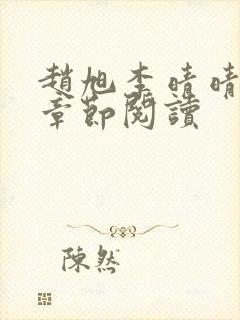 趙旭李晴晴
章節閱讀
陳然